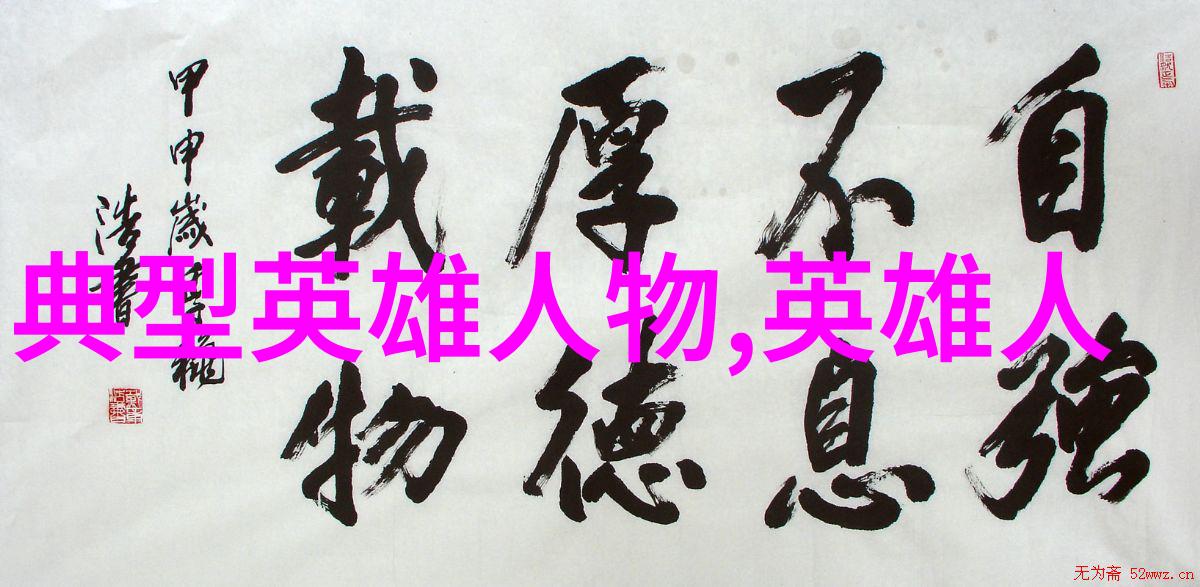 自強
不息
厚德
載物
甲申歲
浩書
典型英雄人物,英雄人
无为斋 52wwz.cn